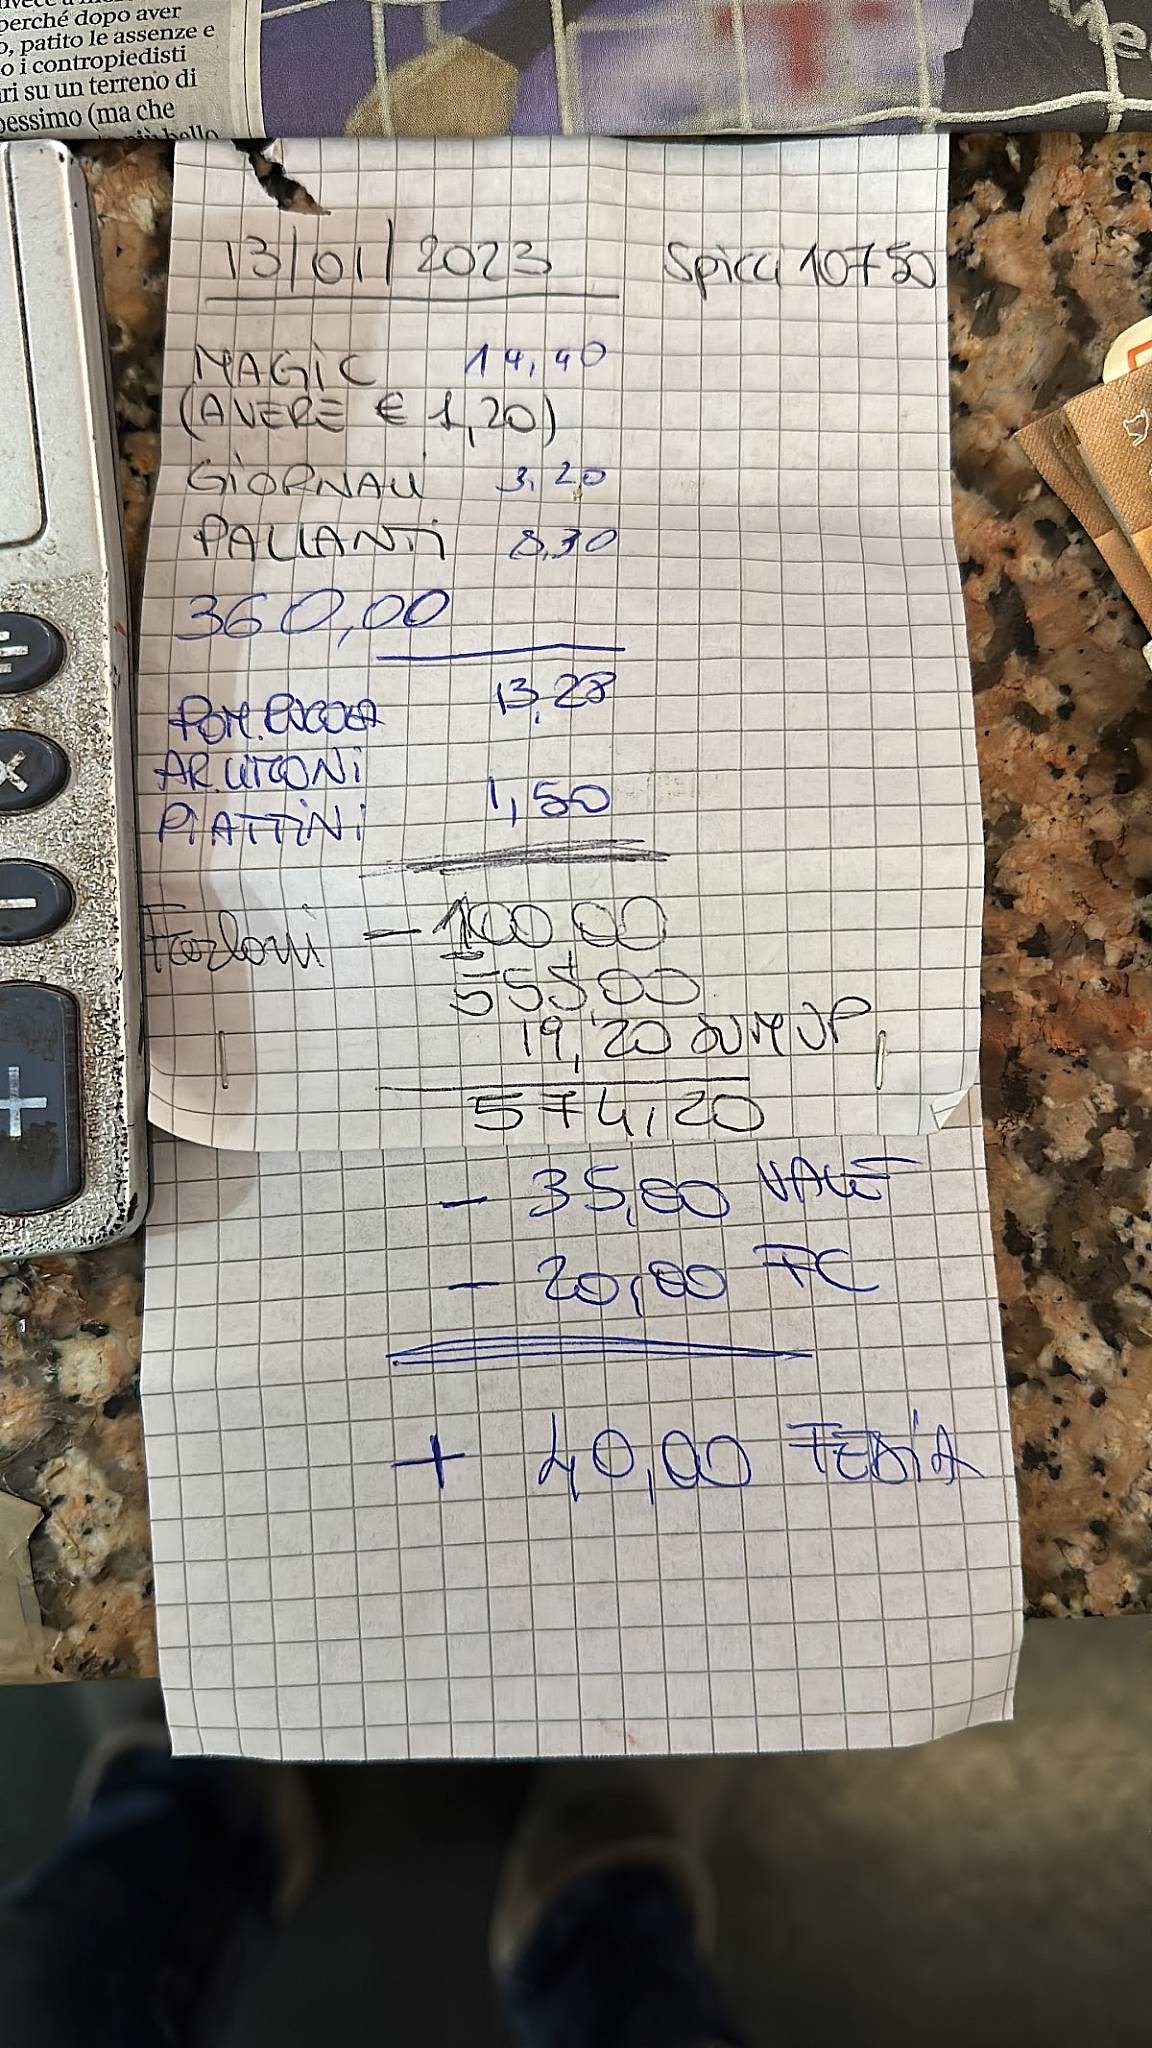 perché dopo aver
o, patito le assenze e
o i contropiedisti
ri su un terreno di
pessimo (ma che
più bello
13/01/2023 Spicci 10750
MAGIC 14,40
(AVERE € 1,20)
GIORNALI 3,20
PALLANTI 8,30
360,00
13,28
PIATTINI 1,50
- 100,00
555,00
19,20 SUMUP
574,20
- 35,00 VALE
- 20,00 FC
+ 40,00